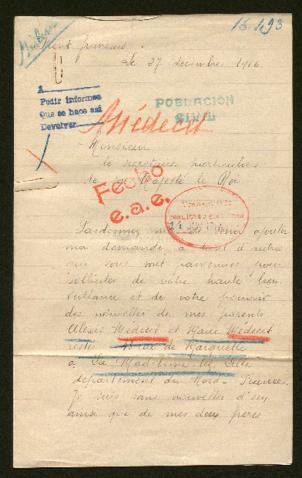 16.493
Médecit français.
Le 27 décembre 1916
A
Pedir informes
Que se hace así
Devolver
POBLACION
CIVIL
Médecit
Monsieur
le secrétaire particulier
de sa Majesté le Roi
Fecho
e.a.e.
Pardonnez moi de venir ajouter
ma demande à tant d'autres
qui vous sont parvenues pour
solliciter de votre haute bien-
veillance et de votre pouvoir
des nouvelles de mes parents
Alexis Médecit et Marie Médecit
restés rue de Marquette
à La Madeleine lez Lille
département du Nord. France.
Je suis sans nouvelles d'eux
ainsi que de mes deux frères